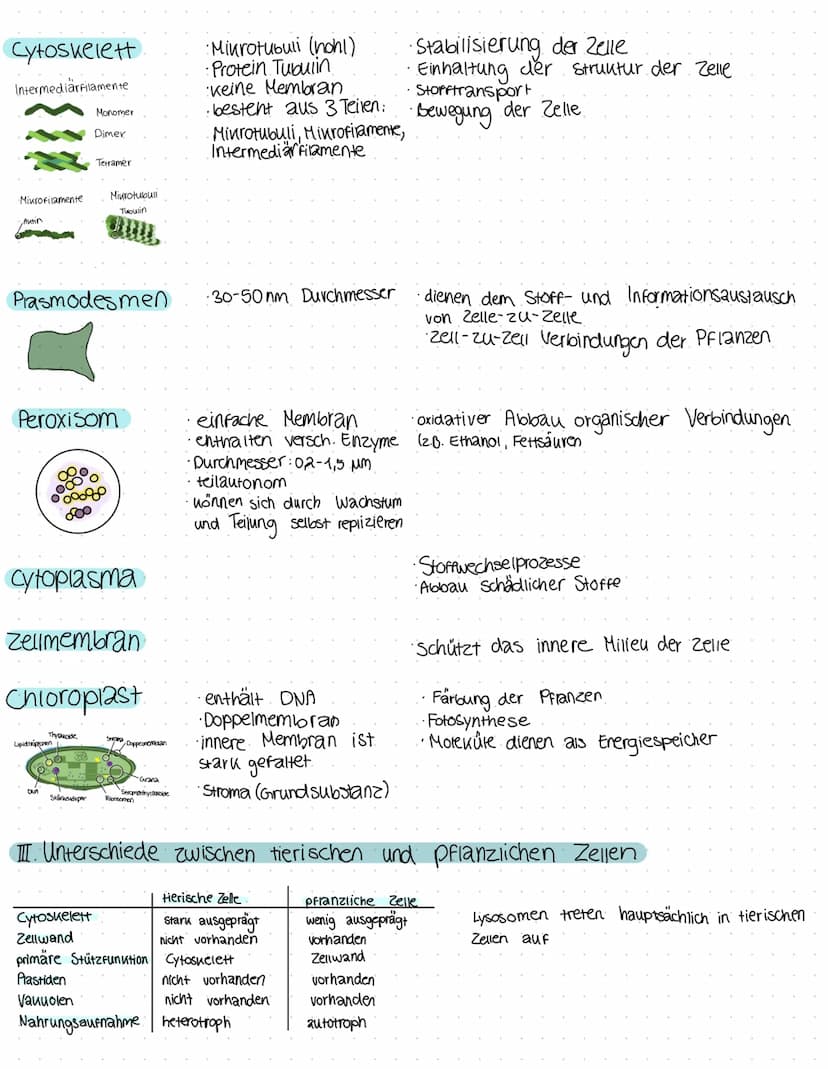 Cytoskelett
Intermediärfilamente
Monomer
Dimer
Tetramer
Mikrofilamente
Aktin
Mikrotubuli
Tubulin
· Mikrotubuli (hohl)
· Protein Tubulin
· keine Membran
· besteht aus 3 Teilen:
Mikrotubuli, Mikrofilamente,
Intermediärfilamente
· Stabilisierung der Zelle
· Einhaltung der Struktur der Zelle
· Stofftransport
· Bewegung der Zelle
Plasmodesmen
· 30-50 nm Durchmesser
· dienen dem Stoff- und Informationsaustausch
von Zelle-zu-Zelle
· Zell-zu-Zell Verbindungen der Pflanzen
Peroxisom
· einfache Membran
· enthalten versch. Enzyme
· Durchmesser: 0,2-1,5 µm
· teilautonom
· können sich durch Wachstum
und Teilung selbst replizieren
· oxidativer Abbau organischer Verbindungen
(z.B. Ethanol, Fettsäuren
Cytoplasma
· Stoffwechselprozesse
· Abbau schädlicher Stoffe
Zellmembran
· Schützt das innere Milieu der Zelle
Chloroplast
Thylakoide
Stroma
Doppelmembran
Grana
Ribosomen
Stärkekörper
DNA
· enthält DNA
· Doppelmembran
· innere Membran ist
stark gefaltet
· Stroma (Grundsubstanz)
· Färbung der Pflanzen
· Fotosynthese
· Moleküle dienen als Energiespeicher
III. Unterschiede zwischen tierischen und pflanzlichen Zellen
tierische Zelle pflanzliche Zelle
Cytoskelett stark ausgeprägt wenig ausgeprägt
Zellwand nicht vorhanden vorhanden
primäre Stützfunktion Cytoskelett Zellwand
Plastiden nicht vorhanden vorhanden
Vakuolen nicht vorhanden vorhanden
Nahrungsaufnahme heterotroph autotroph
Lysosomen treten hauptsächlich in tierischen
Zellen auf